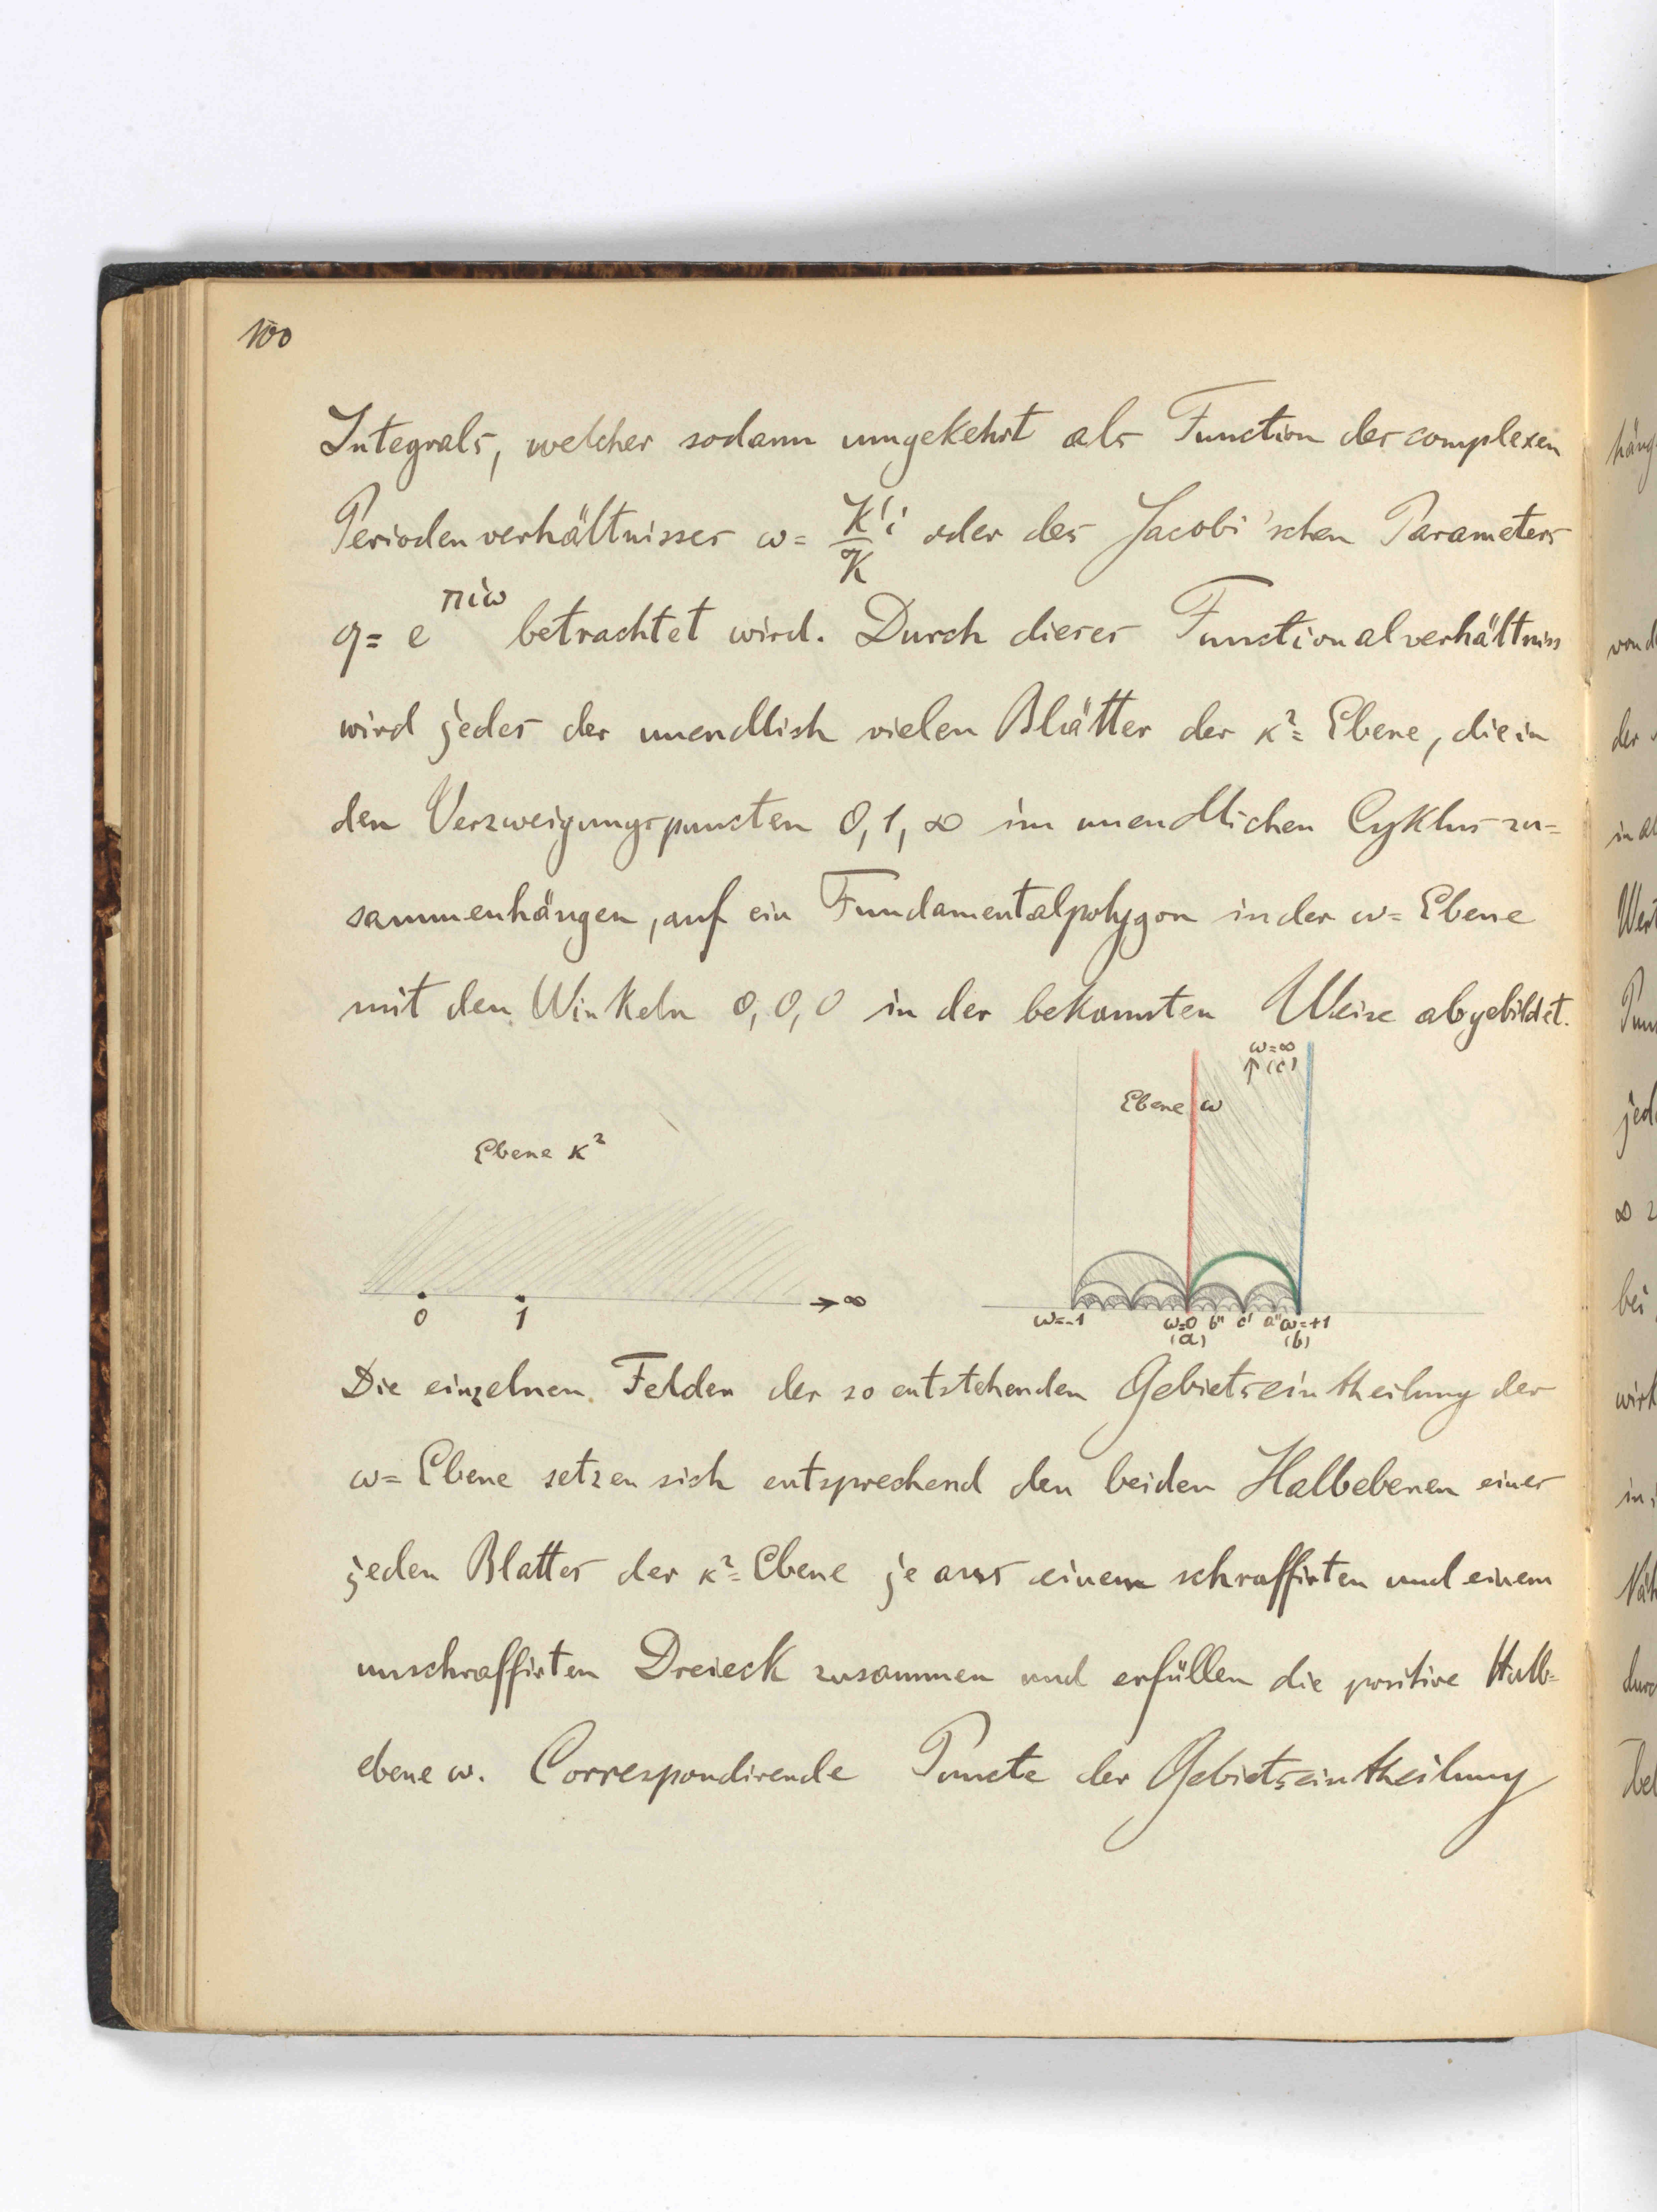 100
Integrals, welches sodann umgekehrt als Function des complexen
Periodenverhältnisses ω = K'i/K oder des Jacobi'schen Parameters
q = e^πiω betrachtet wird. Durch dieses Functionalverhältniss
wird jedes der unendlich vielen Blätter der κ²= Ebene, die in
den Verzweigungspuncten 0, 1, ∞ im unendlichen Cyklus zu=
sammenhängen, auf ein Fundamentalpolygon in der ω= Ebene
mit den Winkeln 0, 0, 0 in der bekannten Weise abgebildet.
ω=∞
↑(c)
Ebene ω
Ebene κ²
0 1 → ∞
ω=-1 ω=0 b" c' a" ω=+1
(a) (b)
Die einzelnen Felder der so entstehenden Gebietseintheilung der
ω= Ebene setzen sich entsprechend den beiden Halbebenen eines
jeden Blattes der κ²= Ebene je aus einem schraffirten und einem
unschraffirten Dreieck zusammen und erfüllen die positive Halb=
ebene ω. Correspondirende Puncte der Gebietseintheilung
häng
von d
der
in al
Wert
jed
∞
bei
wirk
in
durc